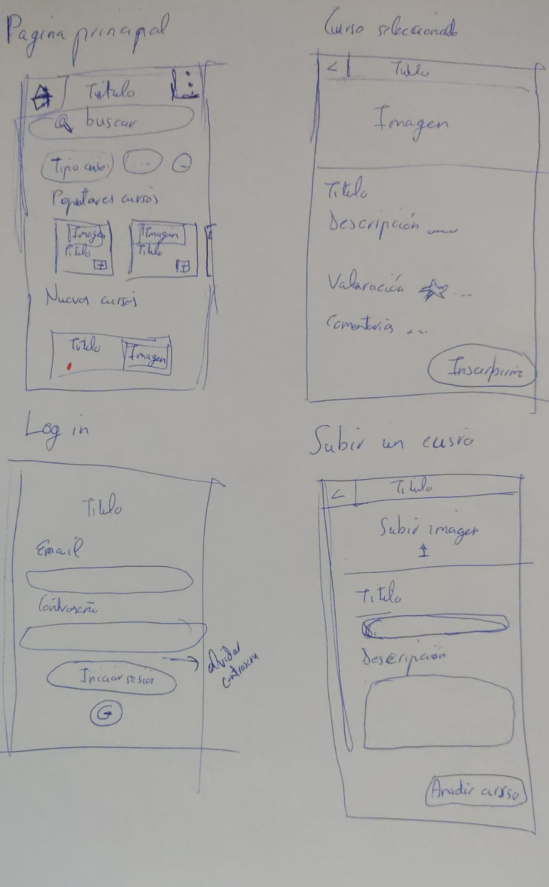 Pagina principal
Titulo
buscar
Tipo curso
...
Populares cursos
Imagen
Titulo
+
Imagen
Titulo
+
Nuevos cursos
Titulo
Imagen
Curso seleccionado
<
Titulo
Imagen
Titulo
Descripción
Valaración ...
Comentarios ...
Log in
Titulo
Email
Contraseña
Iniciar sesion
olvidar
contraseña
G
Subir un
<
Titulo
Subir imagen
Titulo
Descripción
Anadir